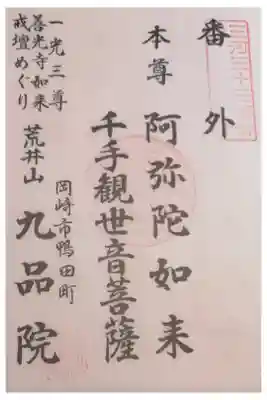 番外
本尊 阿弥陀如来
千手観世音菩薩
岡崎市鴨田町
荒井山 九品院
一光三尊
善光寺如来
戒壇めぐり